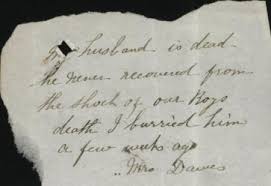 husband is dead
he never recovered from
the shock of our Boys
death I burried him
a few weeks ago
Mrs Dawes